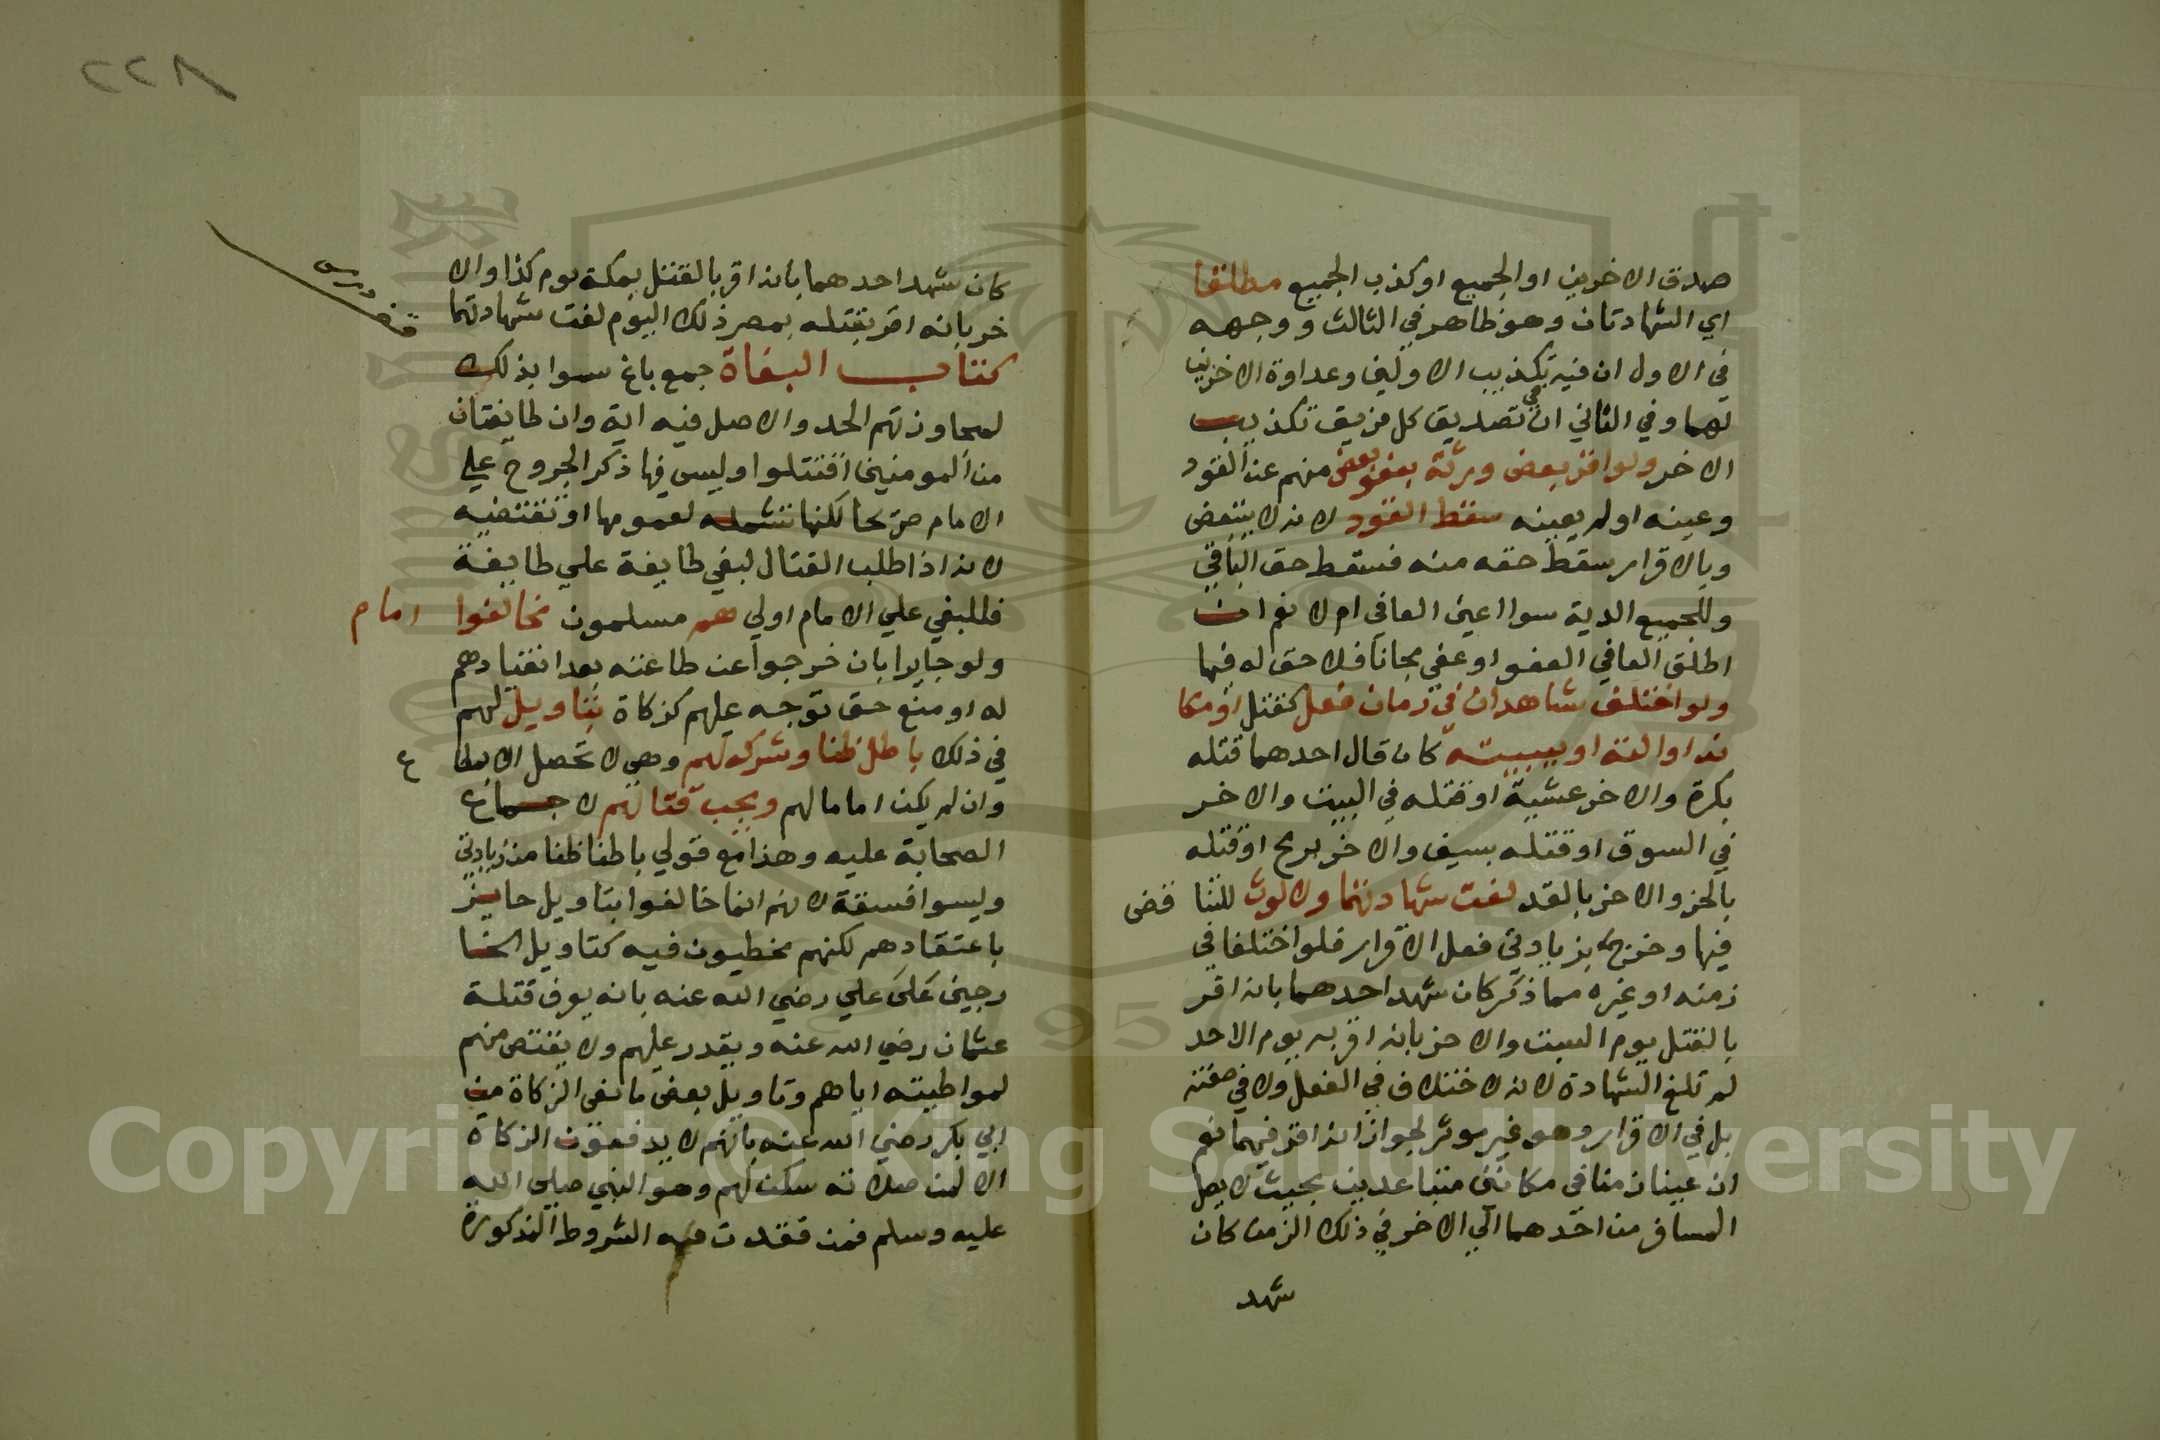 صدق الاخرين او الجميع او كذب الجميع مطلقا
اي الشهادتان وهو ظاهر في الثالث ووجهه
في الاول ان فيه تكذيب الاولين وعداوة الاخرين
لهما وفي الثاني ان في تصديق كل فريق تكذيب
الاخر ولو اقر بعض ورثة بعفو بعض منهم عن القود
وعينه او لم يعينه سقط القود لانه لا يتبعض
وبالاقرار سقط حقه منه فسقط حق الباقي
وللجميع الدية سوا اعين العافي ام لا نعم ان
اطلق العافي العفو او عفي مجانا فلا حق له فيها
ولو اختلف شاهدان في زمان فعل كقتل او مكا
نه او الته او هيبيته كان قال احدهما قتله
بكرة والاخر عشية او قتله في البيت والاخر
في السوق او قتله بسيف والاخر برمح او قتله
بالحز والاخر بالقد لغت شهادتهما ولا لوث للتنا قض
فيها وخرج بزيادتي فعل الاقرار فلو اختلفا في
زمنه او غيره مما ذكر كان شهد احدهما بانه اقر
بالقتل يوم السبت والاخر بانه اقر به يوم الاحد
لم تلغ الشهادة لانه لا اختلاف في الفعل ولا في صفته
بل في الاقرار وهو غير موثر لجواز انه اقر فيهما نعم
ان عينا زمنا في مكانين متباعدين بحيث لا يصل
المسافر من احدهما الي الاخر في ذلك الزمن كان
شهد
٢٢٨
كان شهد احدهما بانه اقر بالقتل بمكة يوم كذا والا
خر بانه اقر بقتله بمصر ذلك اليوم لغت شهادتهما
كتاب البغاة جمع باغ سموا بذلك
لمجاوزتهم الحد والاصل فيه اية وان طايفتان
من المومنين اقتتلوا وليس فيها ذكر الخروج علي
الامام صريحا لكنها تشمله لعمومها او تقتضيه
لانه اذا طلب القتال لبغي طايفة علي طايفة
فللبغي علي الامام اولي هم مسلمون مخالفوا امام
ولو جايرا بان خرجوا عن طاعته بعد انقيادهم
له او منع حق توجه عليهم كزكاة بتاويل لهم
في ذلك باطل ظنا وشوكة لهم وهي لا تحصل الا بمطا ع
وان لم يكن اماما لهم ويجب قتالهم لاجماع
الصحابة عليه وهذا مع قولي باطنا ظنا من زيادتي
وليسوا فسقة لانهم انما خالفوا بتاويل جايز
باعتقادهم لكنهم مخطيون فيه كتاويل الخا
رجين علي علي رضي الله عنه بانه يعرف قتلة
عثمان رضي الله عنه ويقدر عليهم ولا يقتص منهم
لمواطيته اياهم وتاويل بعض مانعي الزكاة من
ابي بكر رضي الله عنه بانهم لا يدفعون الزكاة
الا لمن صلاته سكن لهم وهو النبي صلي الله
عليه وسلم فمن فقدت فيه الشروط المذكورة
Copyright © King Saud University
95